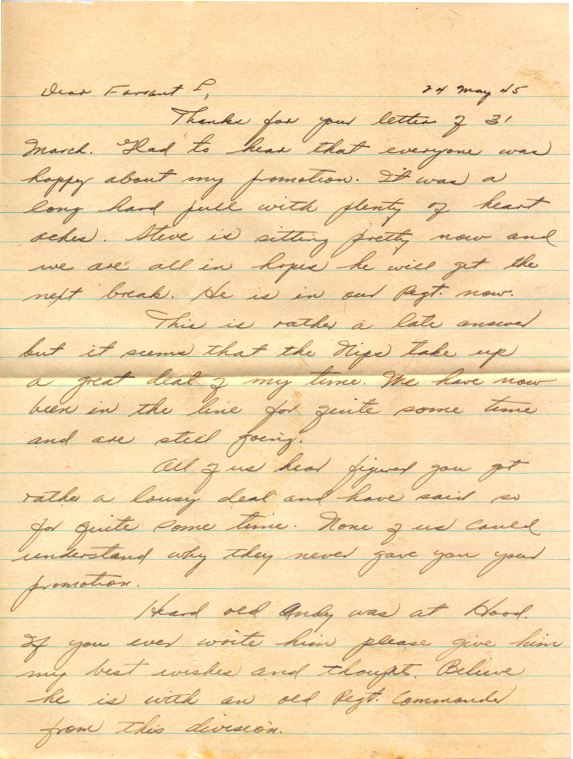 Dear Farrant L, 24 May 45
Thanks for your letter of 31
March. Glad to hear that everyone was
happy about my promotion. It was a
long hard pull with plenty of heart
aches. Steve is sitting pretty now and
we are all in hopes he will get the
next break. He is in our Regt. now.
This is rather a late answer
but it seems that the Nips take up
a great deal of my time. We have now
been in the line for quite some time
and are still going.
All of us hear figured you got
rather a lousy deal and have said so
for quite some time. None of us could
understand why they never gave you your
promotion.
Heard old Andy was at Hood.
If you ever write him please give him
my best wishes and thought. Believe
he is with an old Regt. Commander
from this division.